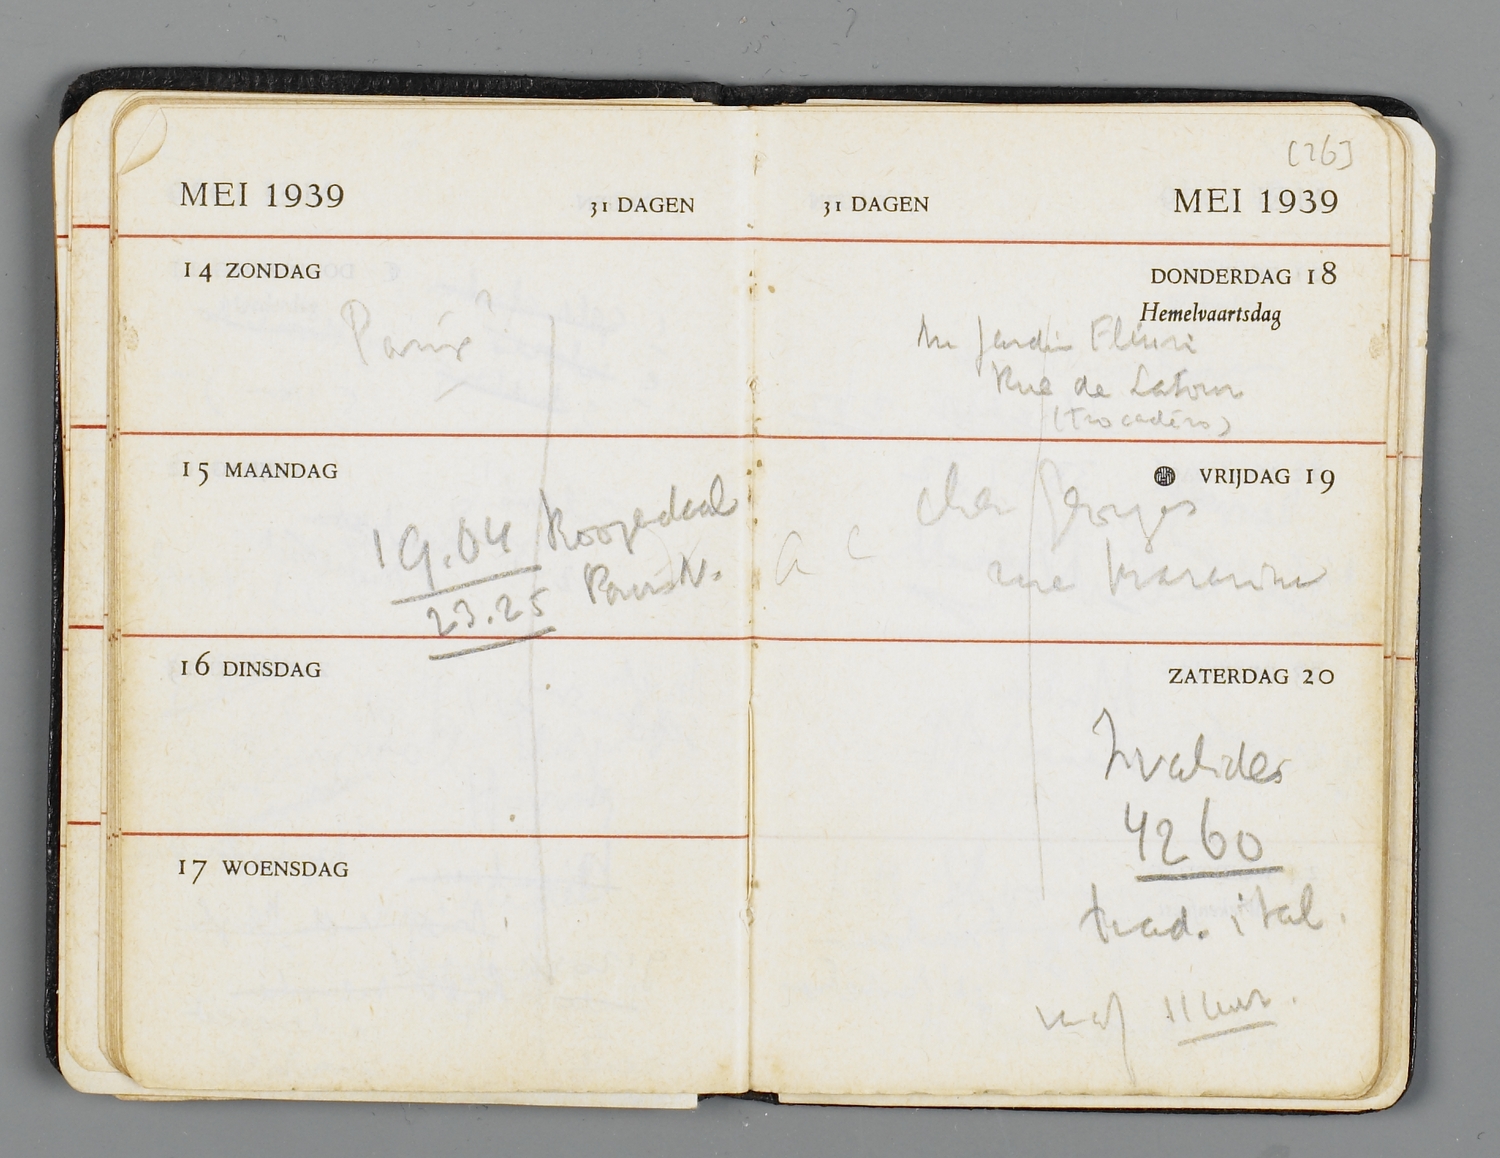 MEI 1939
31 DAGEN
14 ZONDAG
Parijs
15 MAANDAG
19.04 Roozendaal
23.25 Parijs N.
16 DINSDAG
17 WOENSDAG
[26]
31 DAGEN
MEI 1939
DONDERDAG 18
Hemelvaartsdag
Au Jardin Fleuri
Rue de Latour
(Trocadéro)
VRIJDAG 19
chez Georges
rue Mazarine
ZATERDAG 20
Invalides
4260
trad. ital.